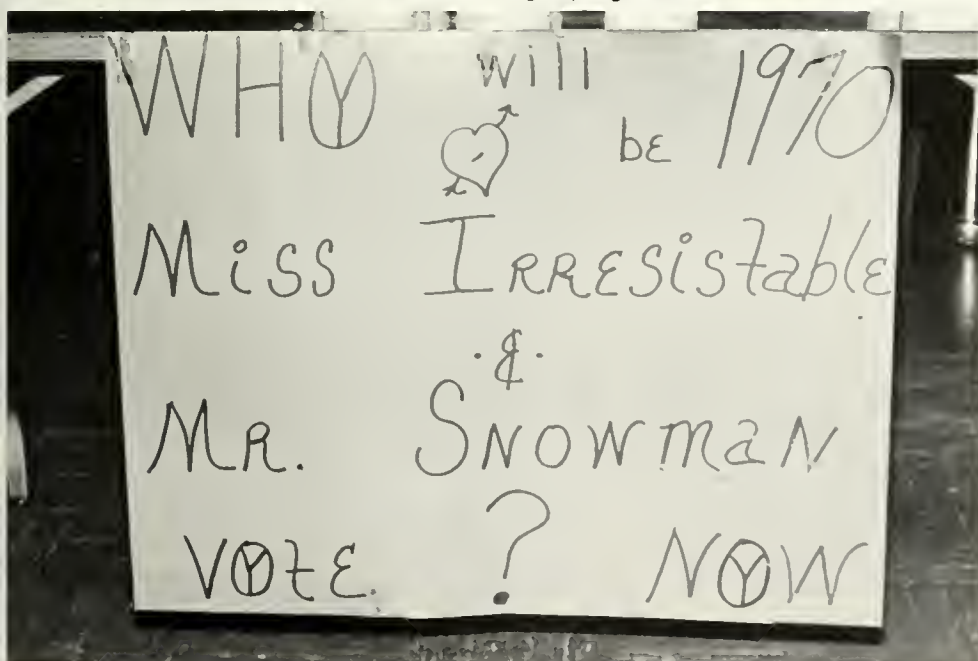 WHO will be 1970
Miss Irresistable
&
Mr. Snowman
Vote ? Now